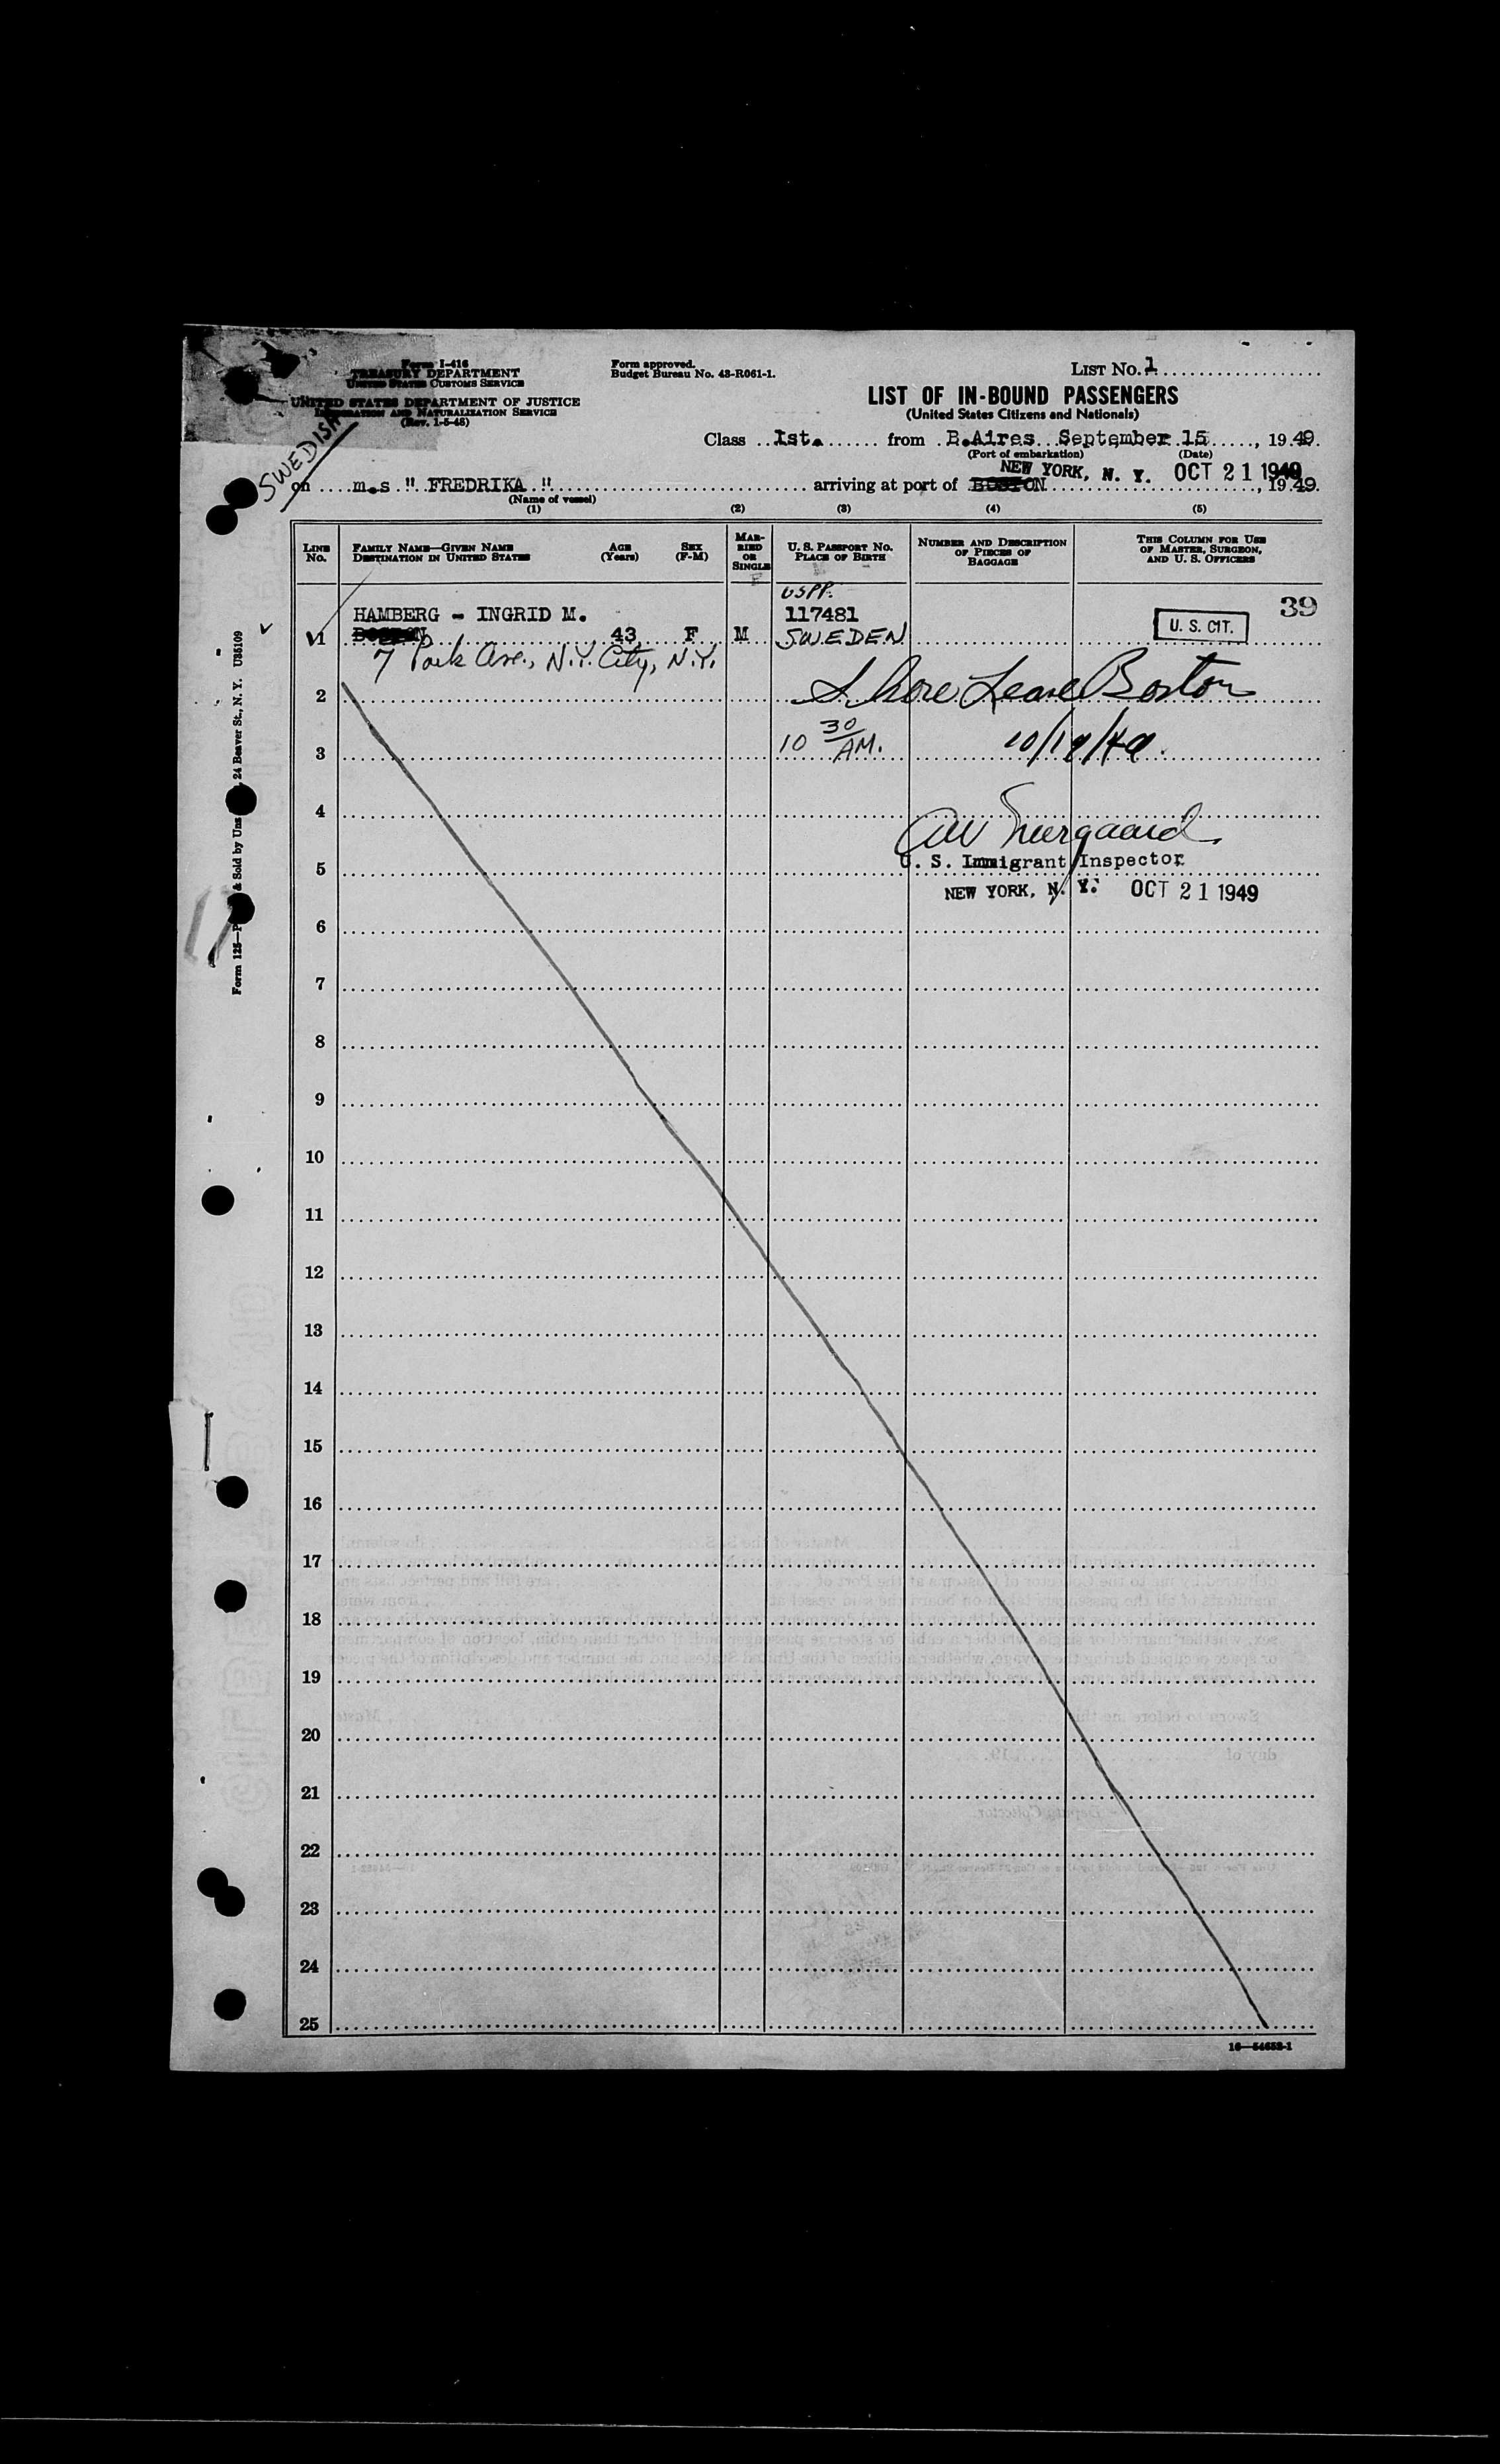 Form I-416
TREASURY DEPARTMENT
UNITED STATES CUSTOMS SERVICE
UNITED STATES DEPARTMENT OF JUSTICE
IMMIGRATION AND NATURALIZATION SERVICE
(Rev. 1-5-48)
Form approved.
Budget Bureau No. 43-R061-1.
LIST No. 1
LIST OF IN-BOUND PASSENGERS
(United States Citizens and Nationals)
Class Ist. from B.Aires September 15, 1949.
(Port of embarkation) (Date)
SWEDISH
NEW YORK, N. Y. OCT 21 1949
on m.s " FREDRIKA " arriving at port of BOSTON, 1949.
(Name of vessel)
(1) (2) (3) (4) (5)
LINE No.
FAMILY NAME—GIVEN NAME
DESTINATION IN UNITED STATES
AGE (Years)
SEX (F-M)
MARRIED OR SINGLE
U. S. PASSPORT No.
PLACE OF BIRTH
NUMBER AND DESCRIPTION OF PIECES OF BAGGAGE
THIS COLUMN FOR USE OF MASTER, SURGEON, AND U. S. OFFICERS
USPP.
39
HAMBERG - INGRID M. 117481
1 BOSTON 43 F M SWEDEN U. S. CIT.
7 Park Ave., N.Y. City, N.Y.
2 Shore Leave Boston
3 10 30 AM. 10/19/49.
4
U. S. Immigrant Inspector
5
NEW YORK, N. Y. OCT 21 1949
6
7
8
9
10
11
12
13
14
15
16
17
18
19
20
21
22
23
24
25
16—54652-1
Form 125—P & Sold by Uns , 24 Beaver St., N. Y. U35109